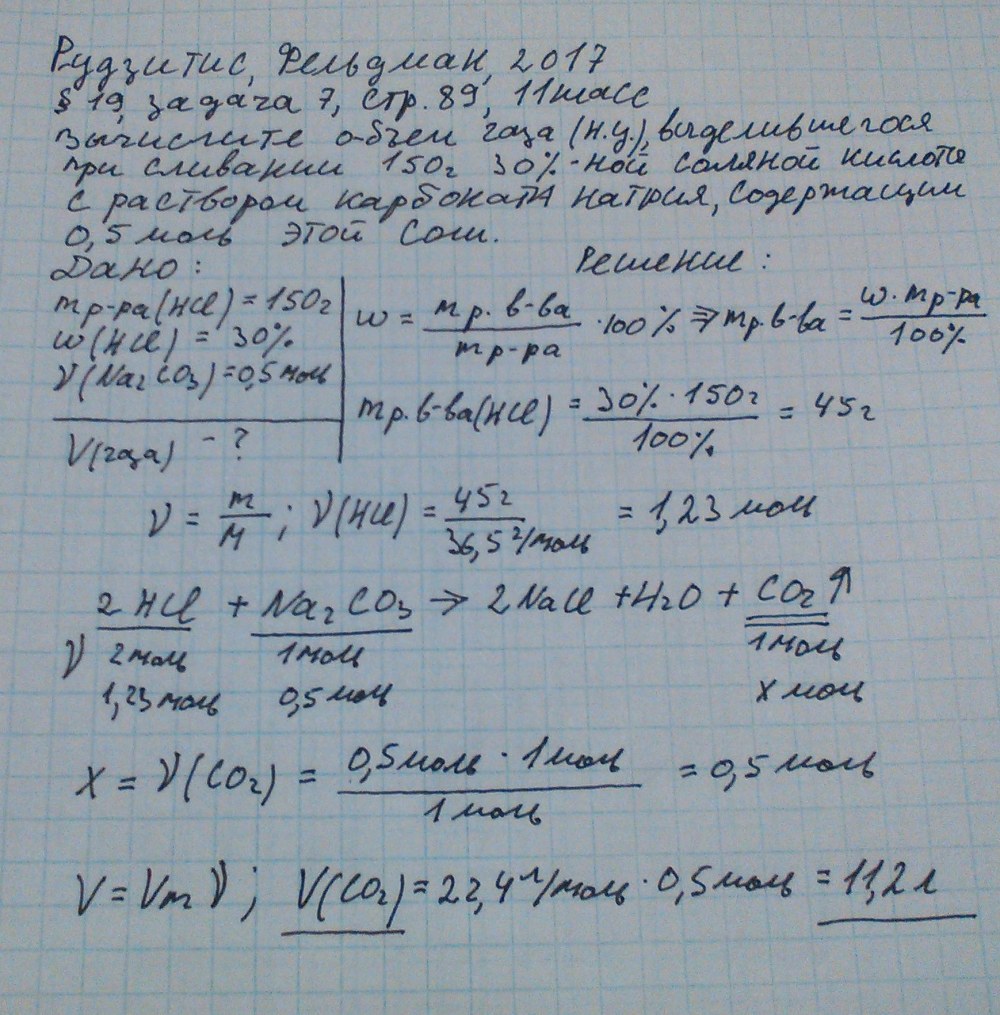 Рудзитис, Фельдман, 2017
§ 19, задача 7, стр. 89, 11 класс
Вычислите объем газа (н.у.), выделившегося
при сливании 150г 30%-ной соляной кислоты
с раствором карбоната натрия, содержащим
0,5 моль этой соли.
Дано: Решение:
mр-ра(HCl) = 150г
w(HCl) = 30%
ν(Na2CO3) = 0,5 моль
V(газа) - ?
w = mр.в-ва / mр-ра · 100% ⇒ mр.в-ва = w · mр-ра / 100%
mр.в-ва(HCl) = 30% · 150г / 100% = 45г
ν = m / M ; ν(HCl) = 45г / 36,5 г/моль = 1,23 моль
2HCl + Na2CO3 → 2NaCl + H2O + CO2↑
ν 2моль 1моль 1моль
1,23 моль 0,5 моль x моль
x = ν(CO2) = 0,5 моль · 1 моль / 1 моль = 0,5 моль
V = Vm ν ; V(CO2) = 22,4 л/моль · 0,5 моль = 11,2 л